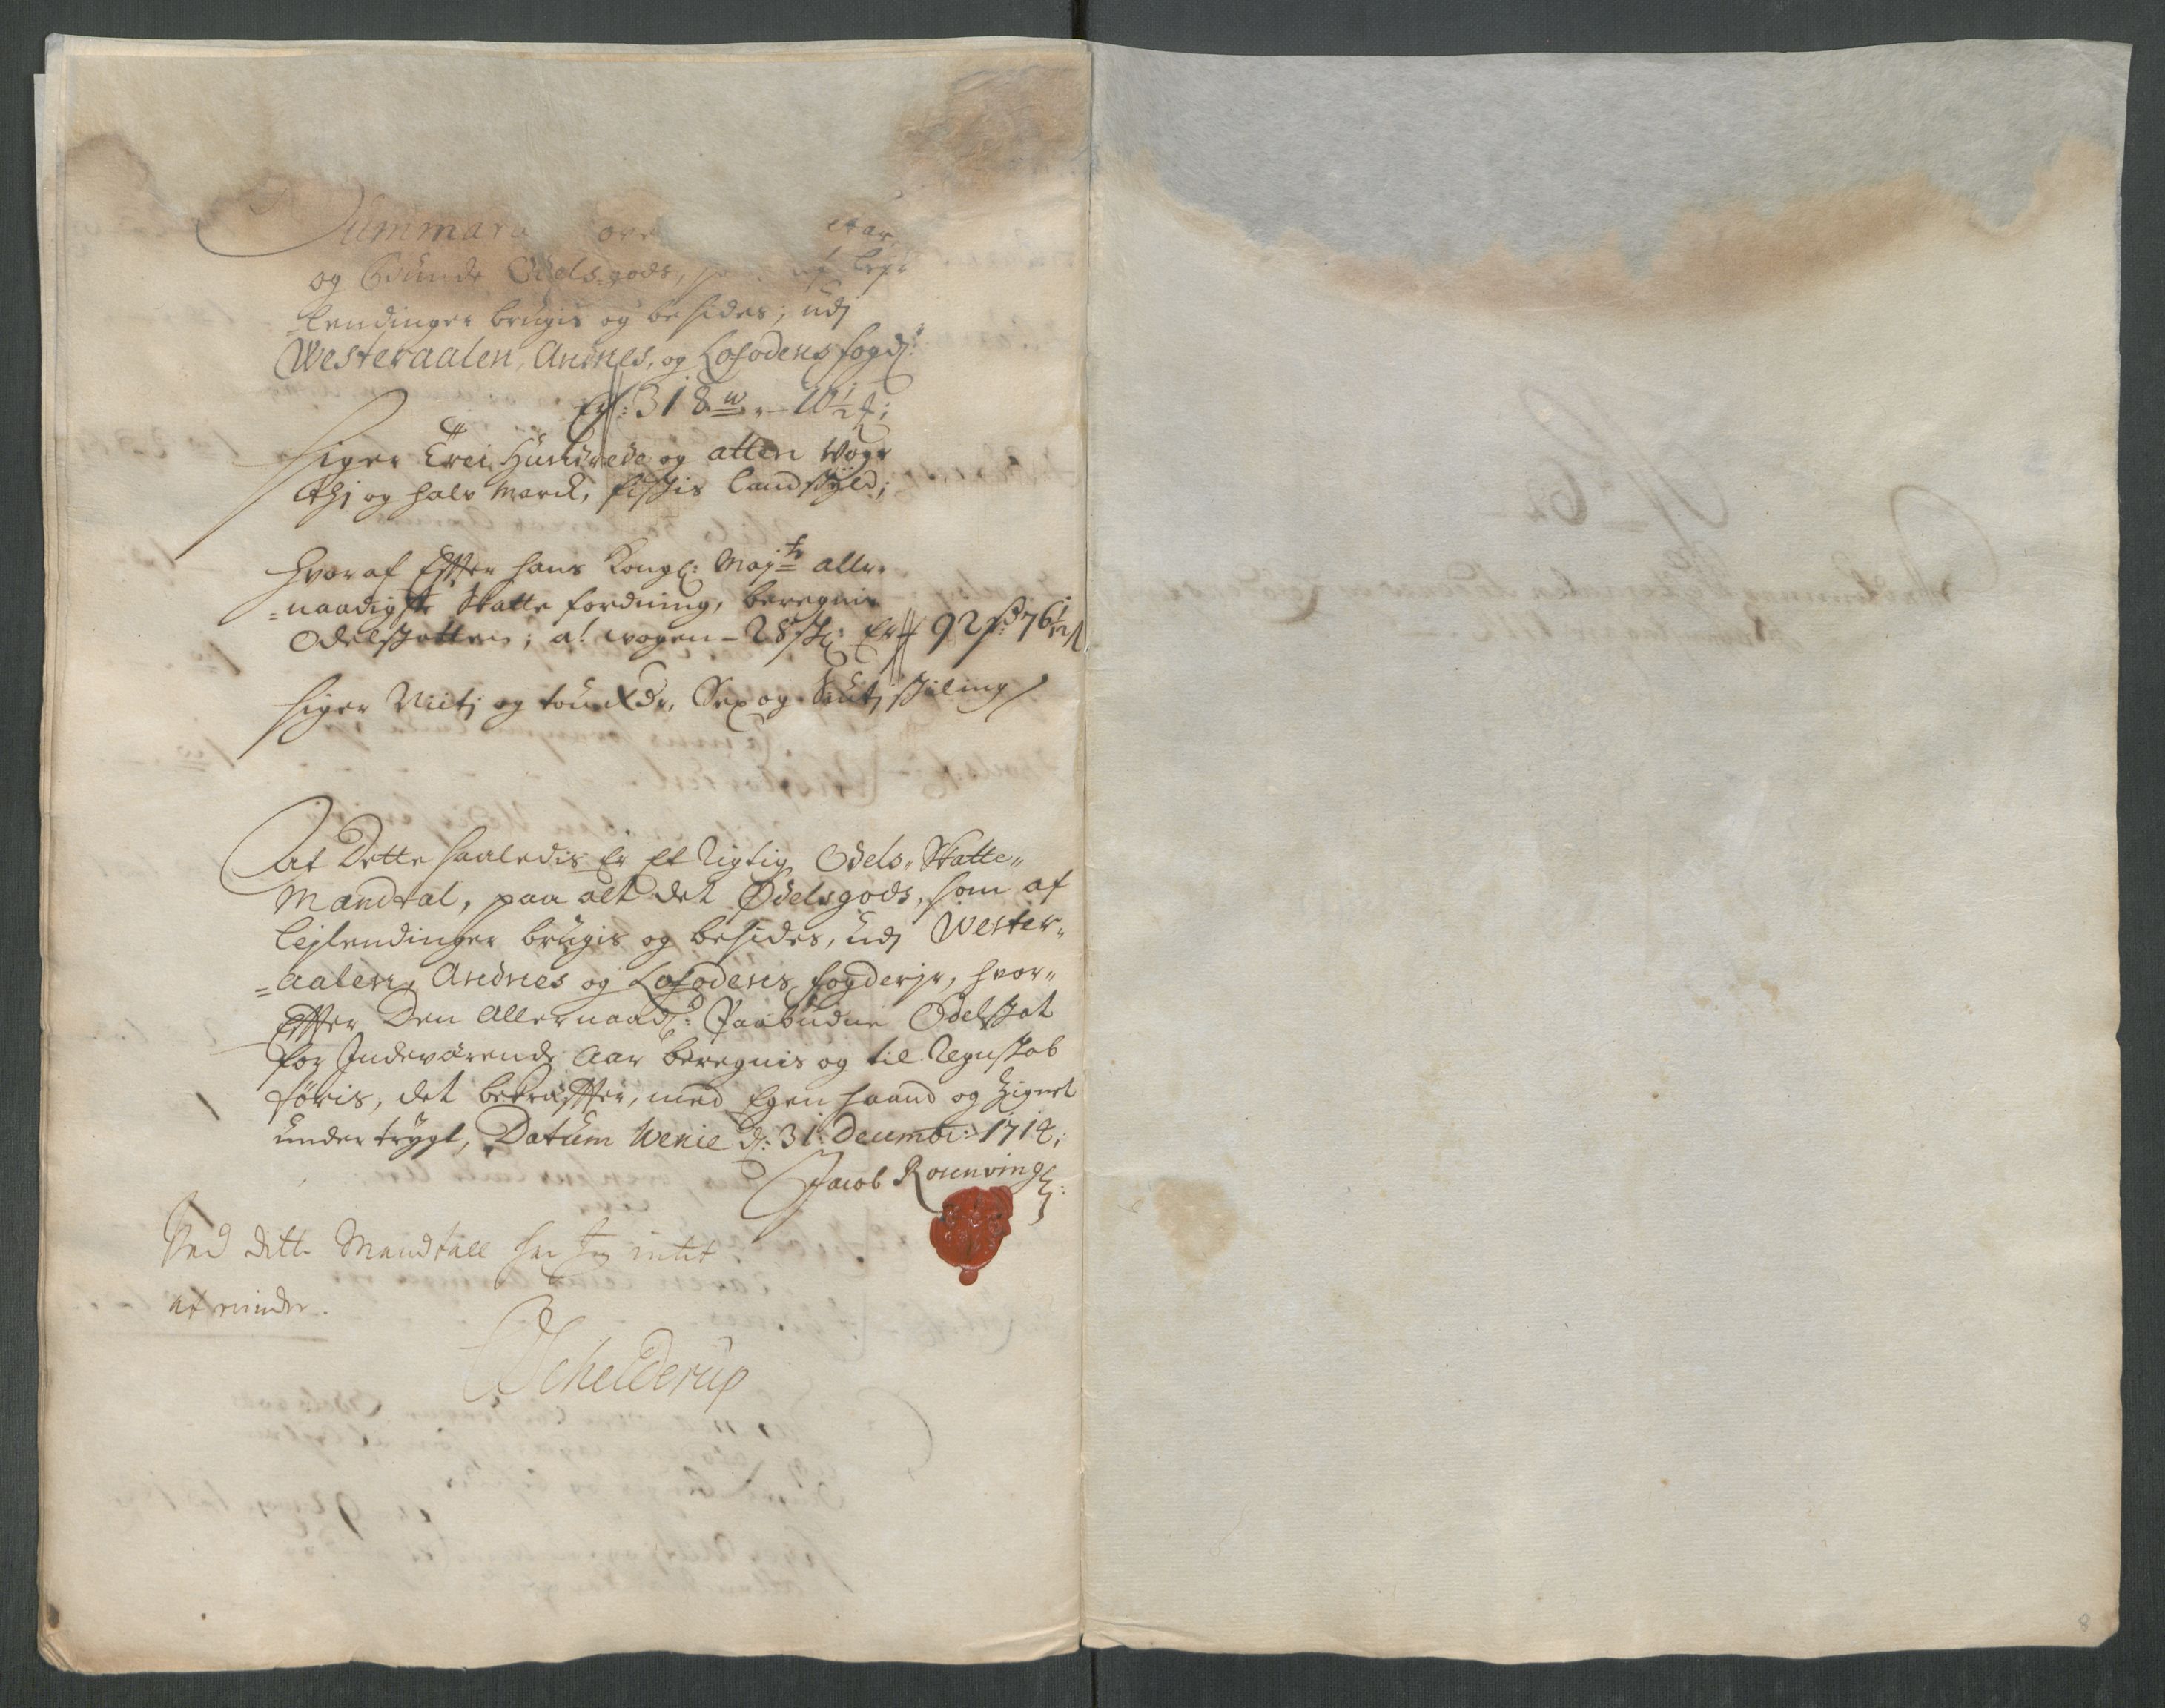 Summara ove
og Bunde Odelsgods, af Lejl
=lendinger brugis og besides, udj
Westeraalen, Andnes, og Lofodens fogd:
Er: 318 w - 10½ #;
siger Trei Hundrede og atten Woge
thj og halv Marck, fischis Landschyld;
Hvoraf Effter hans Kongl: Maj:ts aller
=naadigste Skatte fordning, beregnis
Odelschatten; a! wogen - 28 sh: Er 92 76½
siger Niitj og tou Rdr, Sex og Siutj schiling
At Dette saaledis Er Et Rigtig Odels Skatte
Mandtal, paa alt det Odelsgods, som af
Lejlendinger brugis og besides, udj Wester
=aalen, Andnes og Lofodens fogderje, hvor
Effter Den Allernaad: Paabudne Odelschat
for Indeværende Aar beregnis og til Regnschab
føris, det bekræffter, med Egen haand og Zignet
undertrygt, Datum Werie d: 31: Decembr: 1714;
Jacob Rosenving:
Ved dette Mandtall har Jeg intet
at minde.
Schelderup
8